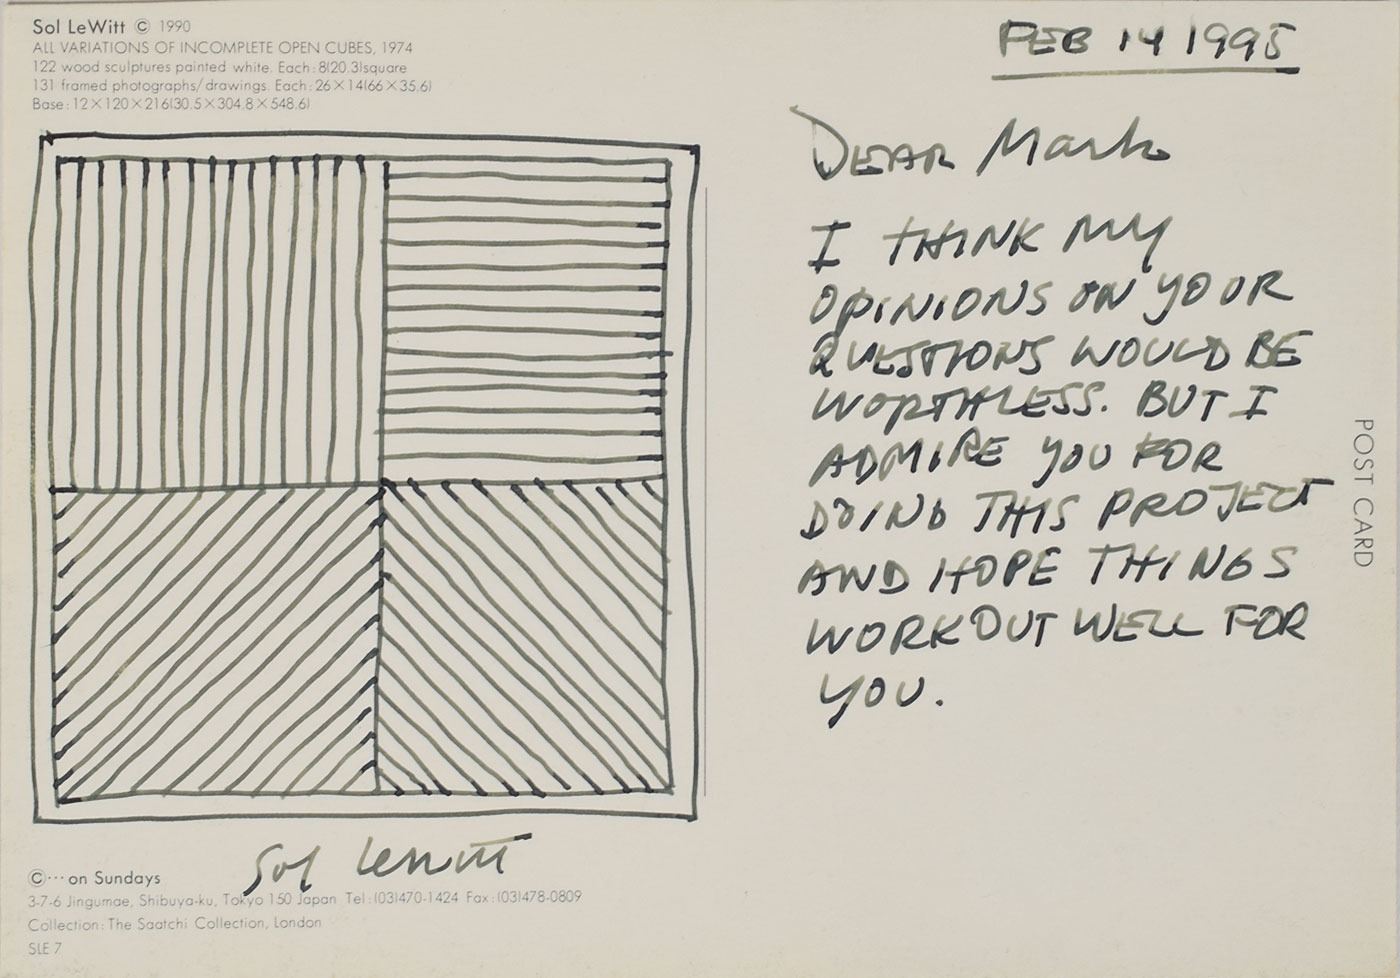 Sol LeWitt © 1990
ALL VARIATIONS OF INCOMPLETE OPEN CUBES, 1974
122 wood sculptures painted white. Each:8(20.3)square
131 framed photographs/drawings. Each:26×14(66×35.6)
Base:12×120×216(30.5×304.8×548.6)
FEB 14 1995
DEAR Mark
I THINK MY
OPINIONS ON YOUR
QUESTIONS WOULD BE
WORTHLESS. BUT I
ADMIRE YOU FOR
DOING THIS PROJECT
AND HOPE THINGS
WORKOUT WELL FOR
YOU.
Sol LeWitt
©··· on Sundays
3-7-6 Jingumae, Shibuya-ku, Tokyo 150 Japan Tel:(03)470-1424 Fax:(03)478-0809
Collection:The Saatchi Collection, London
SLE 7
POST CARD